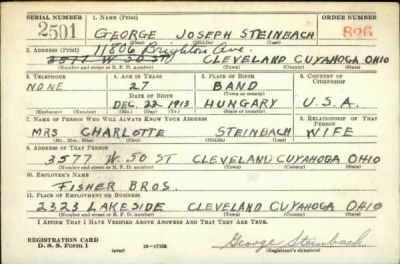 SERIAL NUMBER 1. NAME (Print) ORDER NUMBER
2501 GEORGE JOSEPH STEINBACH 826
(First) (Middle) (Last)
2. ADDRESS (Print) 11806 Brighton Ave.
3577 W. 50 ST CLEVELAND CUYAHOGA OHIO
(Number and street or R. F. D. number) (Town) (County) (State)
3. TELEPHONE 4. AGE IN YEARS 5. PLACE OF BIRTH 6. COUNTRY OF CITIZENSHIP
NONE 27 BAND
DATE OF BIRTH (Town or county)
DEC. 22 1913 HUNGARY U.S.A.
(Mo.) (Day) (Yr.) (State or country)
7. NAME OF PERSON WHO WILL ALWAYS KNOW YOUR ADDRESS 8. RELATIONSHIP OF THAT PERSON
MRS CHARLOTTE STEINBACH WIFE
(Mr., Mrs., Miss) (First) (Middle) (Last)
9. ADDRESS OF THAT PERSON
3577 W. 50 ST CLEVELAND CUYAHOGA OHIO
(Number and street or R. F. D. number) (Town) (County) (State)
10. EMPLOYER'S NAME
FISHER BROS.
11. PLACE OF EMPLOYMENT OR BUSINESS
2323 LAKESIDE CLEVELAND CUYAHOGA OHIO
(Number and street or R. F. D. number) (Town) (County) (State)
I AFFIRM THAT I HAVE VERIFIED ABOVE ANSWERS AND THAT THEY ARE TRUE.
REGISTRATION CARD
D. S. S. Form 1 (over) 16-17105 George Steinbach
(Registrant's signature)